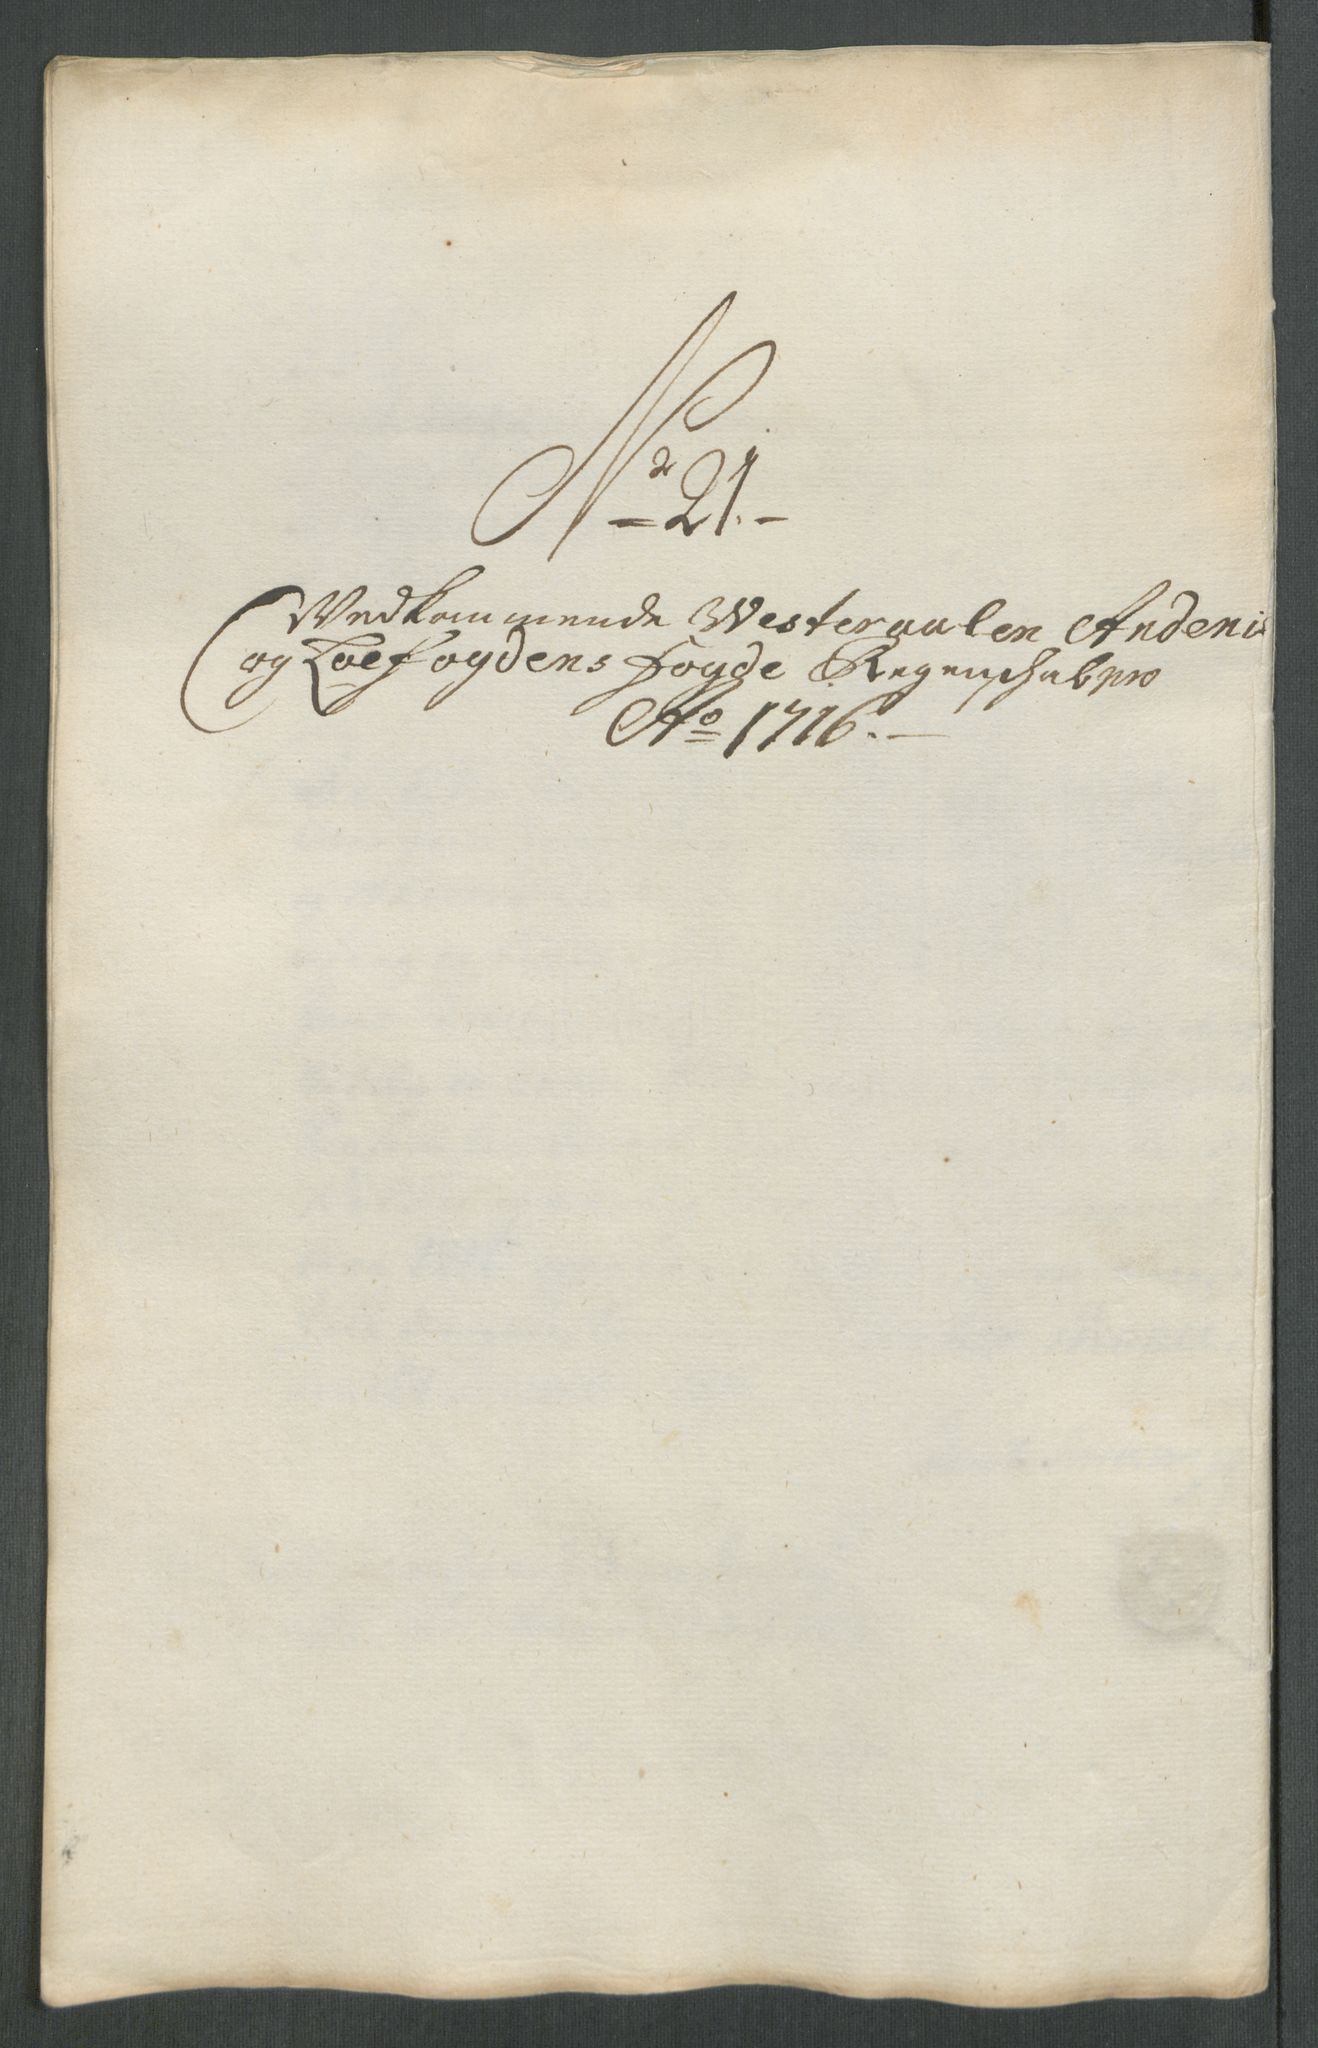 No 21.
Vedkommende Westeraalen Andenis
og Loefoydens fogde Regenschab pro
Ao 1716.